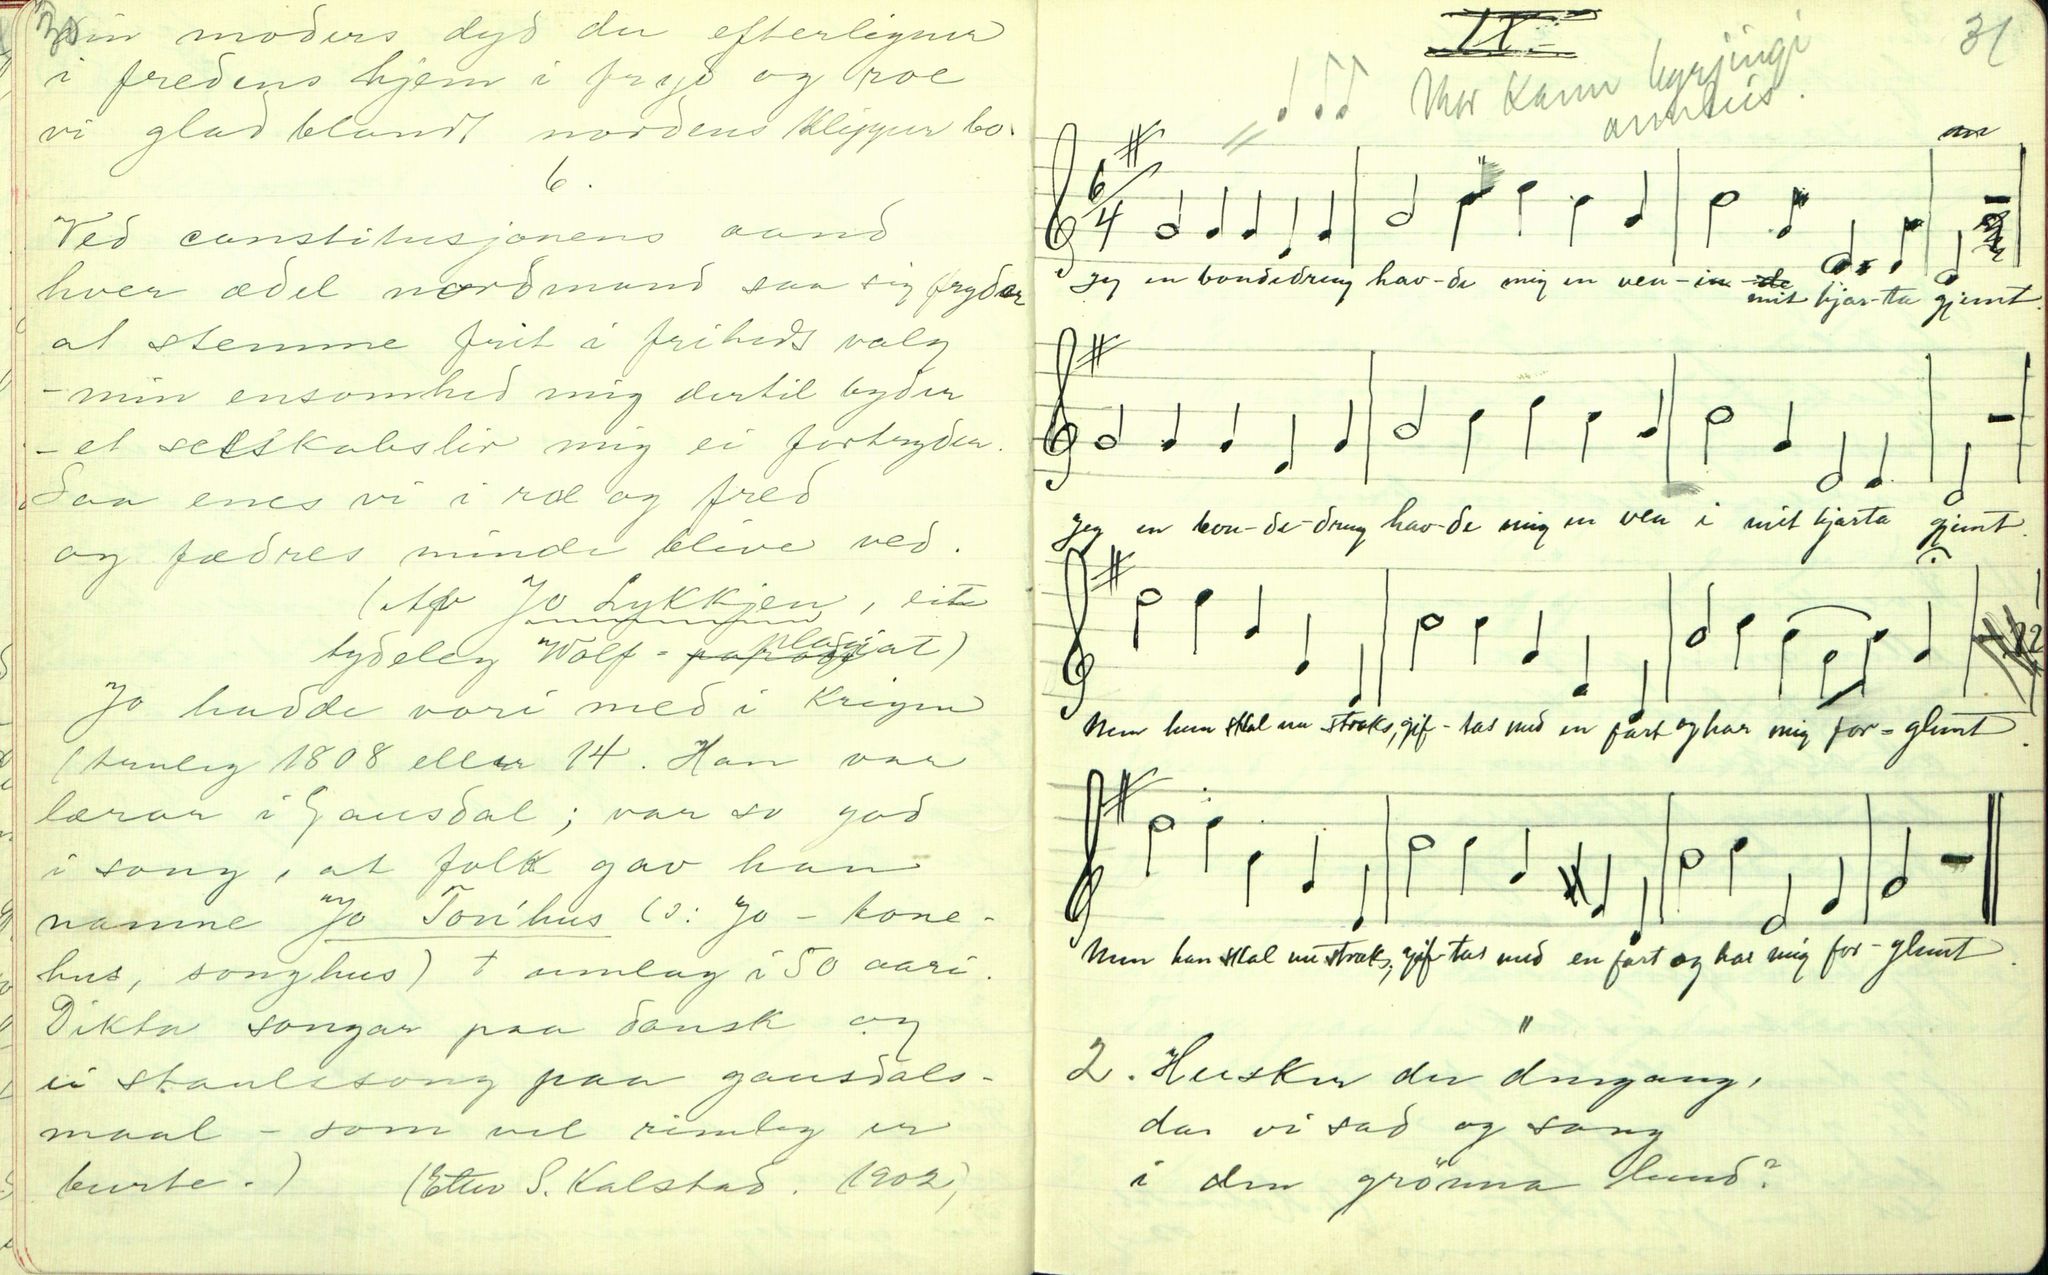 din moders dyd du efterligner
i fredens hjem i fryd og roe
vi glad blandt nordens klipper bo.
6.
Ved constitusjonens aand
hver ædel nordmand saa sig fryder
at stemme frit i friheds valg
- min ensomhed mig dertil byder
- et selskabsliv mig ei fortryder.
Saa enes vi i roe og fred
og fædres minde blive ved.
(Av Jo Lykkjen, eit
tydeleg Wolf-plagiat)
Jo hadde vori med i krigen
(truleg 1808 eller 14. Han var
lærar i Gausdal; var so god
i song, at folk gav han
namne "Jo Tonhus" (ɔ: Jo - tone-
hus, songhus) † umlag i 50 aari.
Dikta songar paa dansk og
ei staulesong paa gausdals-
maal - som vel rimleg er
burte.) (Etter S. Kalstad. 1902)
31
II.
Mor Kann byrjingi
annleis.
6/4
Jeg en bondedreng hav-de mig en ven - i
mit hjar-ta gjemt.
Jeg en bon-de-dreng hav-de mig en ven i mit hjarta gjemt.
Men hun skal nu straks, gif-tas med en fart og har mig for-glemt.
Men hun skal nu straks, gif-tas med en fart og har mig for-glemt.
2. Husker du dengang,
da vi sad og sang
i den grönna lund?